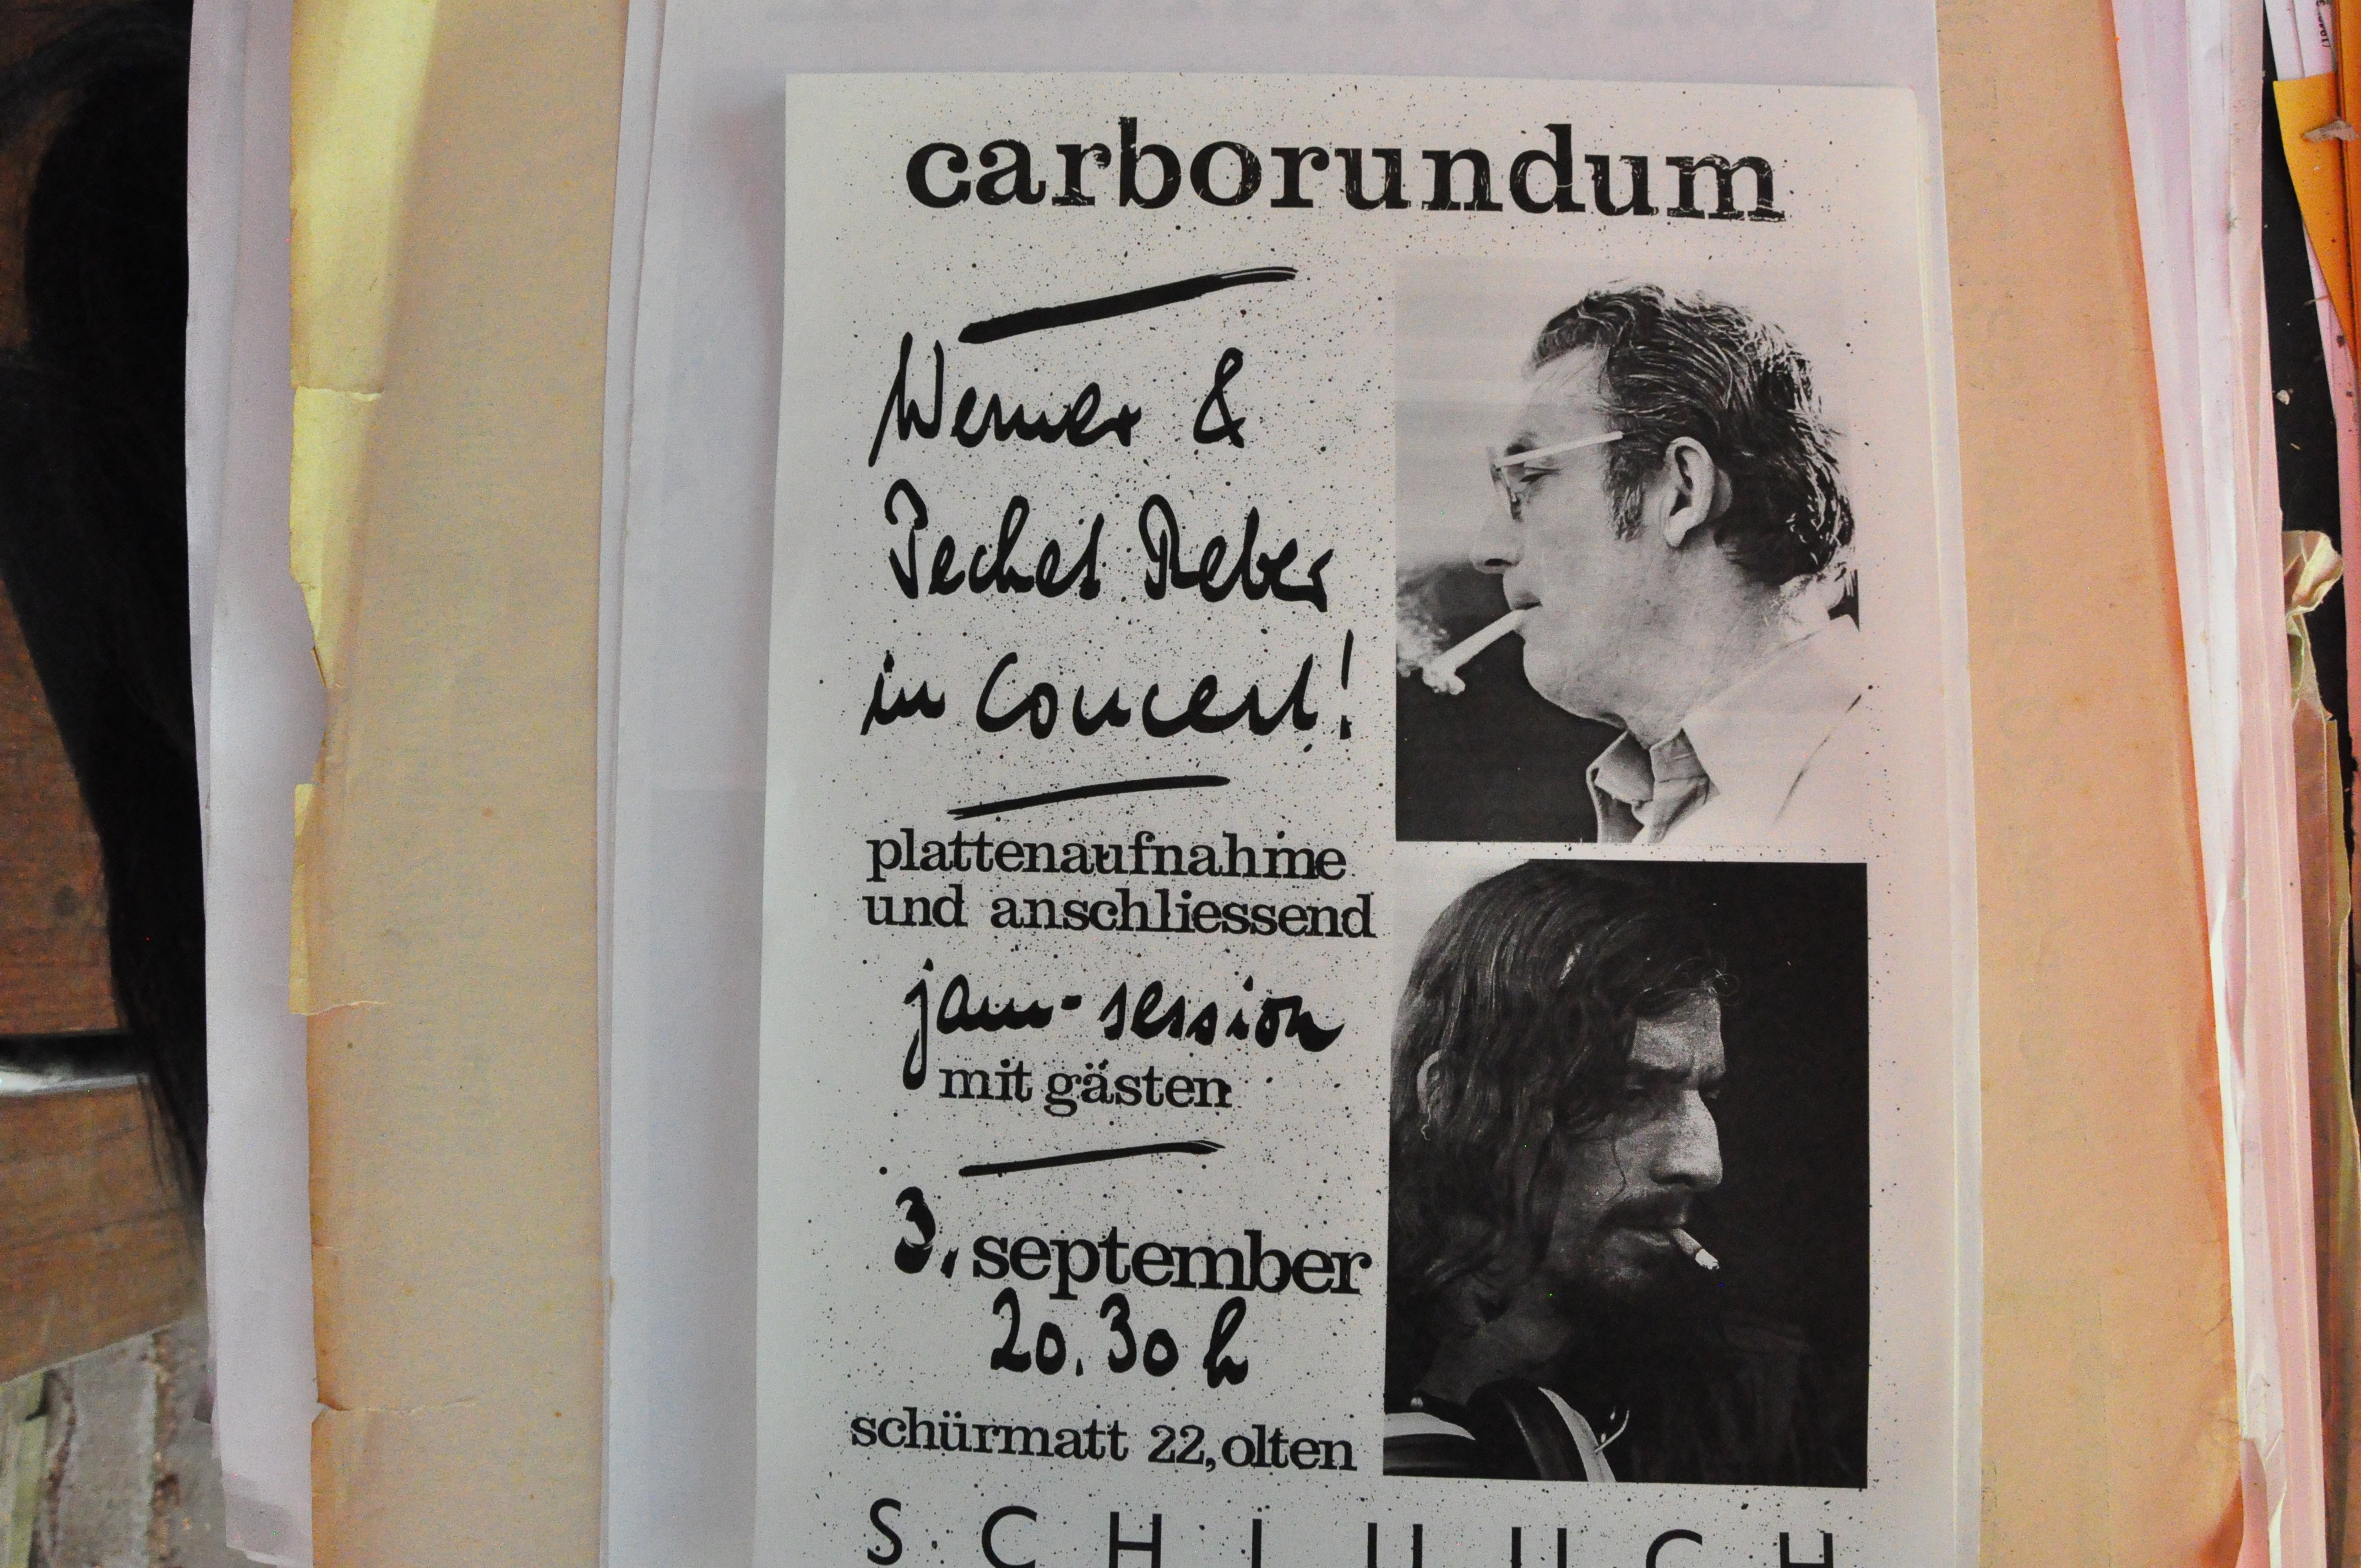 carborundum
Werner &
Pechet Reber
in Concert!
plattenaufnahme
und anschliessend
jam-session
mit gästen
3. september
20.30 h
schürmatt 22, olten